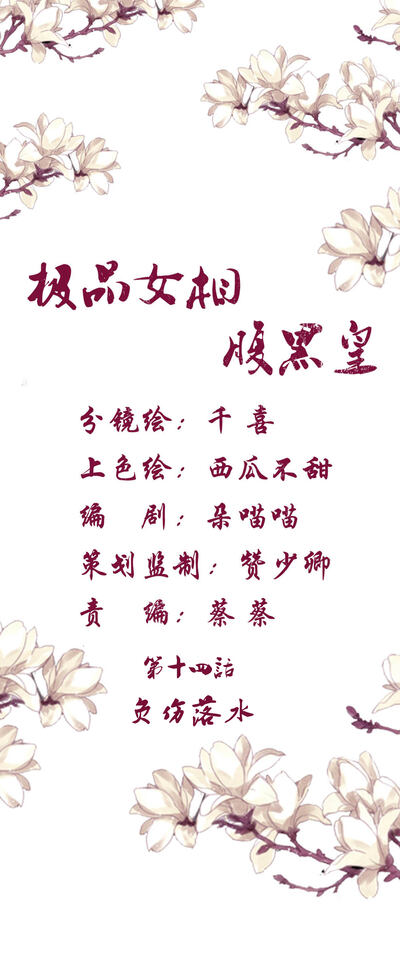 极品女相
腹黑皇
分镜绘：千喜
上色绘：西瓜不甜
编　剧：朵喵喵
策划监制：赞少卿
责　编：蔡蔡
第十四話
负伤落水